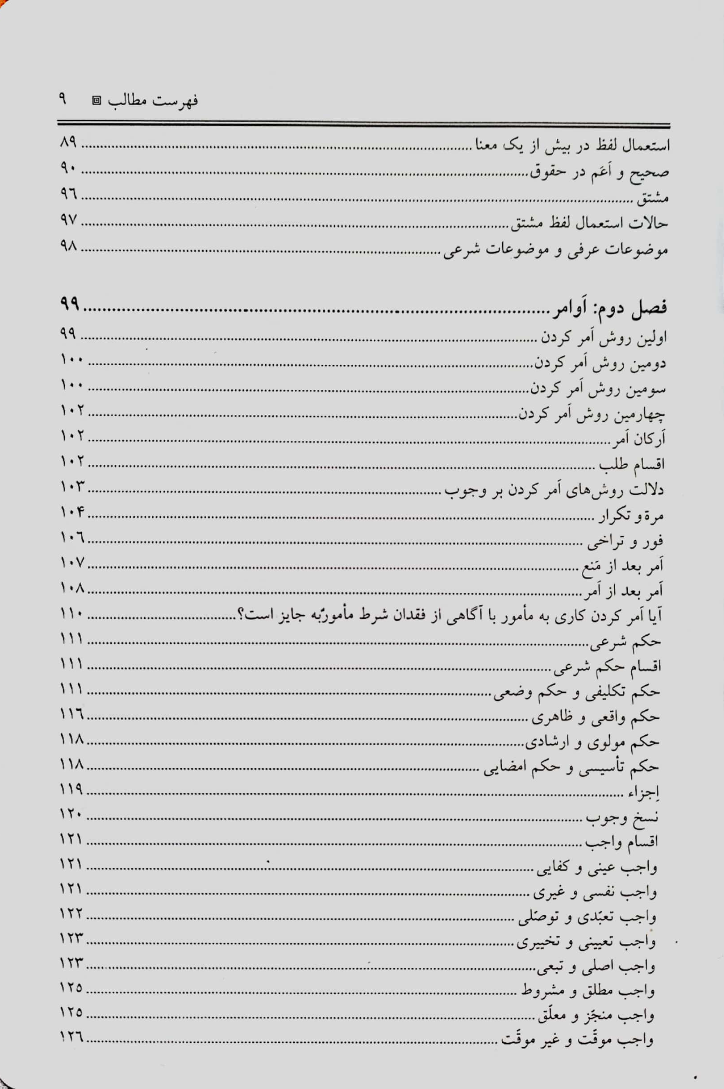 فهرست مطالب ▣ ۹
استعمال لفظ در بیش از یک معنا ........ ۸۹
صحیح و أعَم در حقوق ........ ۹۰
مشتق ........ ۹٦
حالات استعمال لفظ مشتق ........ ۹۷
موضوعات عرفی و موضوعات شرعی ........ ۹۸
فصل دوم: أوامر ........ ۹۹
اولین روش أمر کردن ........ ۹۹
دومین روش أمر کردن ........ ۱۰۰
سومین روش أمر کردن ........ ۱۰۰
چهارمین روش أمر کردن ........ ۱۰۲
أرکان أمر ........ ۱۰۲
اقسام طلب ........ ۱۰۲
دلالت روش‌های أمر کردن بر وجوب ........ ۱۰۳
مرة و تکرار ........ ۱۰۴
فور و تراخی ........ ۱۰٦
أمر بعد از مَنع ........ ۱۰۷
أمر بعد از أمر ........ ۱۰۸
آیا أمر کردن کاری به مأمور با آگاهی از فقدان شرط مأمورٌبه جایز است؟ ........ ۱۱۰
حکم شرعی ........ ۱۱۱
اقسام حکم شرعی ........ ۱۱۱
حکم تکلیفی و حکم وضعی ........ ۱۱۱
حکم واقعی و ظاهری ........ ۱۱٦
حکم مولوی و ارشادی ........ ۱۱۸
حکم تأسیسی و حکم امضایی ........ ۱۱۸
إجزاء ........ ۱۱۹
نسخ وجوب ........ ۱۲۰
اقسام واجب ........ ۱۲۱
واجب عینی و کفایی ........ ۱۲۱
واجب نفسی و غیری ........ ۱۲۱
واجب تعبّدی و توصّلی ........ ۱۲۲
واجب تعیینی و تخییری ........ ۱۲۳
واجب اصلی و تبعی ........ ۱۲۳
واجب مطلق و مشروط ........ ۱۲۵
واجب منجّز و معلّق ........ ۱۲۵
واجب موقّت و غیر موقّت ........ ۱۲٦